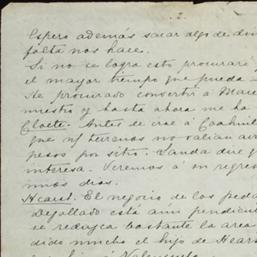 2.
Espero además sacar algo de din
falta nos hace.
Si no se logra esto procuraré
el mayor tiempo que pueda
He procurado convertir á Mac
nuestro y hasta ahora me ha
Cloete. Antes de crae á Coahuil
que n/ terrenos no valian arr
pesos por sitio. Sauda que
interesa. Veremos á mi regres
unos dias.
Hearst. El negocio de los peda
Degollado está aun pendient
se reduzca bastante la area
dido mucho el hijo de Hears